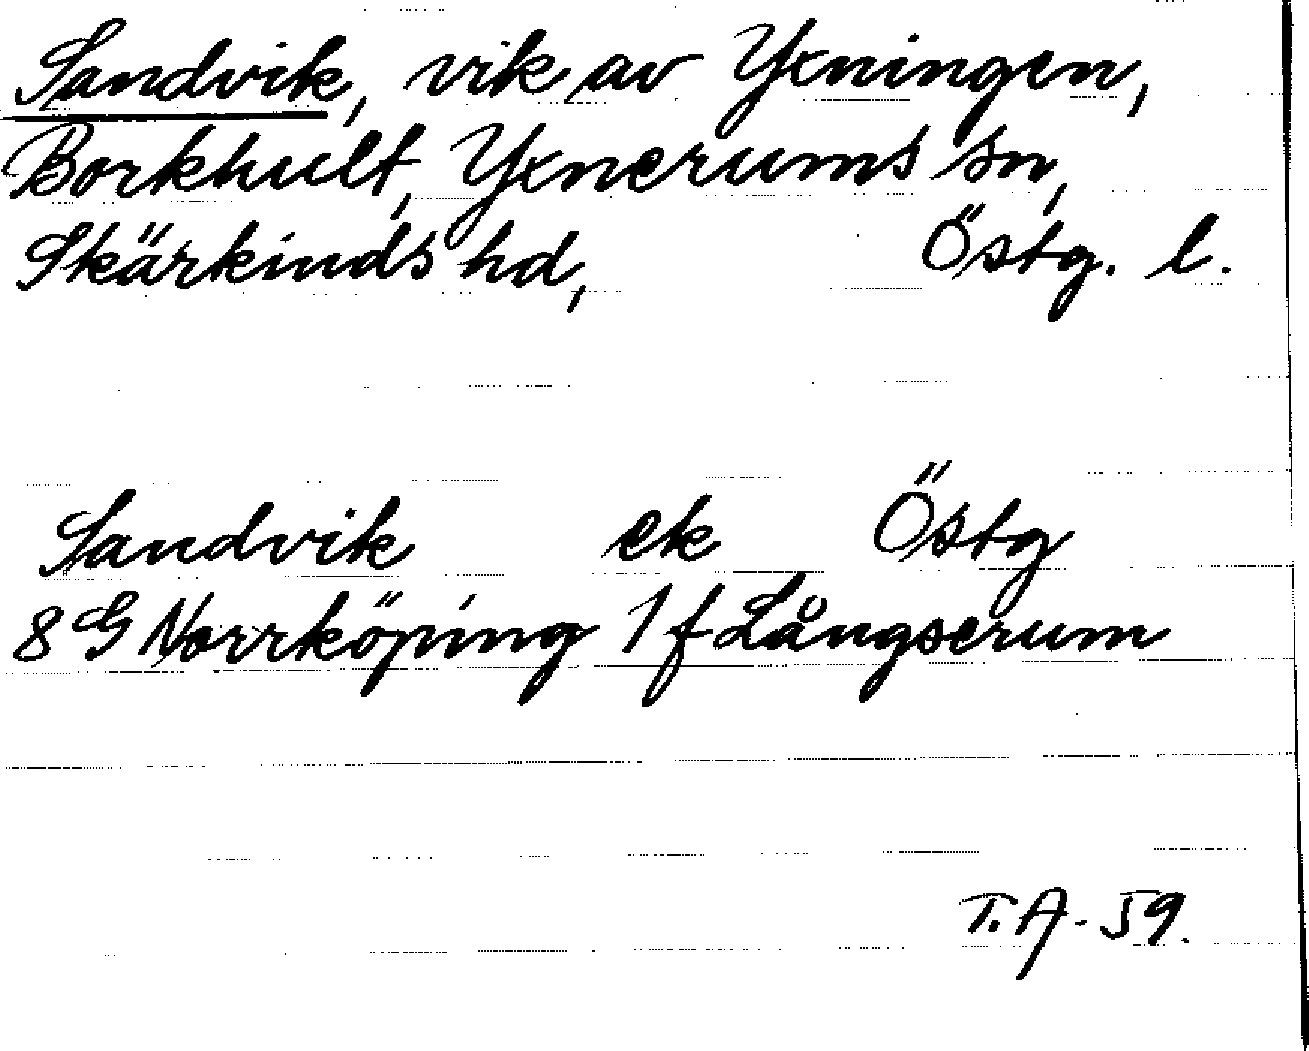 Sandvik, vik av Yxningen,
Borkhult, Yxnerums sn,
Skärkinds hd, Östg. l.
Sandvik ek Östg
8 G Norrköping 1 f Långserum
T.A. 59.